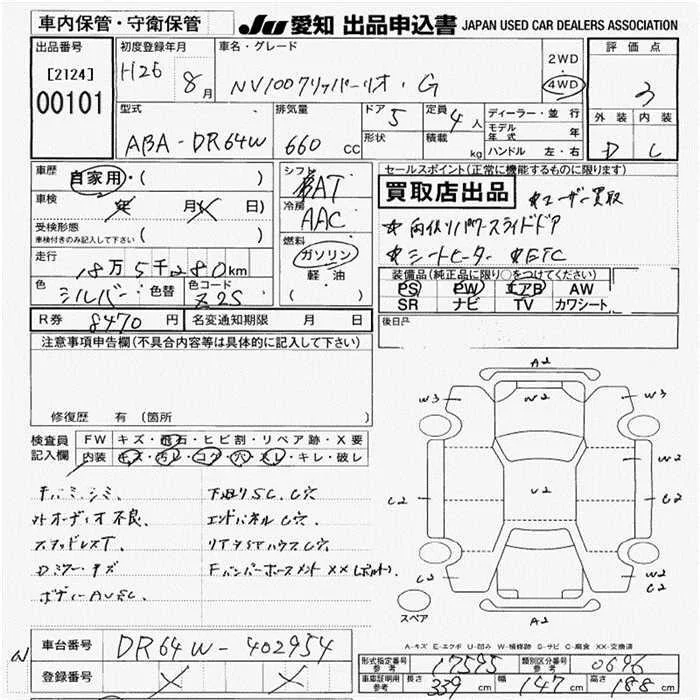 車内保管・守衛保管
JU 愛知 出品申込書 JAPAN USED CAR DEALERS ASSOCIATION
出品番号
[2124]
00101
初度登録年月
H26 8月
車名・グレード
NV100クリッパーリオ・G
2WD
・
4WD
評価点
3
外装 内装
D C
型式
ABA-DR64W
排気量
660 cc
ドア 5
形状
定員 4人
積載 kg
ディーラー・並行
モデル年式 年
ハンドル 左・右
車歴 自家用・( )
車検 年 月 日)
受検形態
車検付きのみ記入して下さい ( )
走行 18万5千280km
色 シルバー 色替 色コード Z2S
シフト AT
冷房 AAC
燃料
ガソリン
軽油
( )
セールスポイント(正常に機能するものに限ります)
買取店出品 *ユーザー買取
*両側リパワースライドドア
*シートヒーター *ETC
装備品(純正品に限り〇をつけてください)
PS PW エアB AW
SR ナビ TV カワシート
R券 8470円 名変通知期限 月 日
後日品
注意事項申告欄(不具合内容等は具体的に記入して下さい)
修復歴 有(箇所 )
検査員記入欄
FW キズ・飛石・ヒビ割・リペア跡・X要
内装 キズ・汚レ・コゲ・穴・スレ・キレ・破レ
チバミ、シミ、
外オーディオ不良、
スタッドレスT、
Dミラーキズ
ボディーAUSC、
下廻りSC、C穴
エンドパネルC穴、
リアタイヤハウスC穴
FバンパーホースメントXX(ボルト)、
A2
W3 W2 W3
C2 U2 W2
C2
C2 W2
C2
A2
スペア
A-キズ E-エクボ U-凹み W-補修跡 S-サビ C-腐食 XX-交換済
車台番号 DR64W-402954
登録番号 X X
形式指定番号 参考 17595
類別区分番号 参考 0696
車庫証明用 参考 長さ 339 cm 幅 147 cm 高さ 188 cm